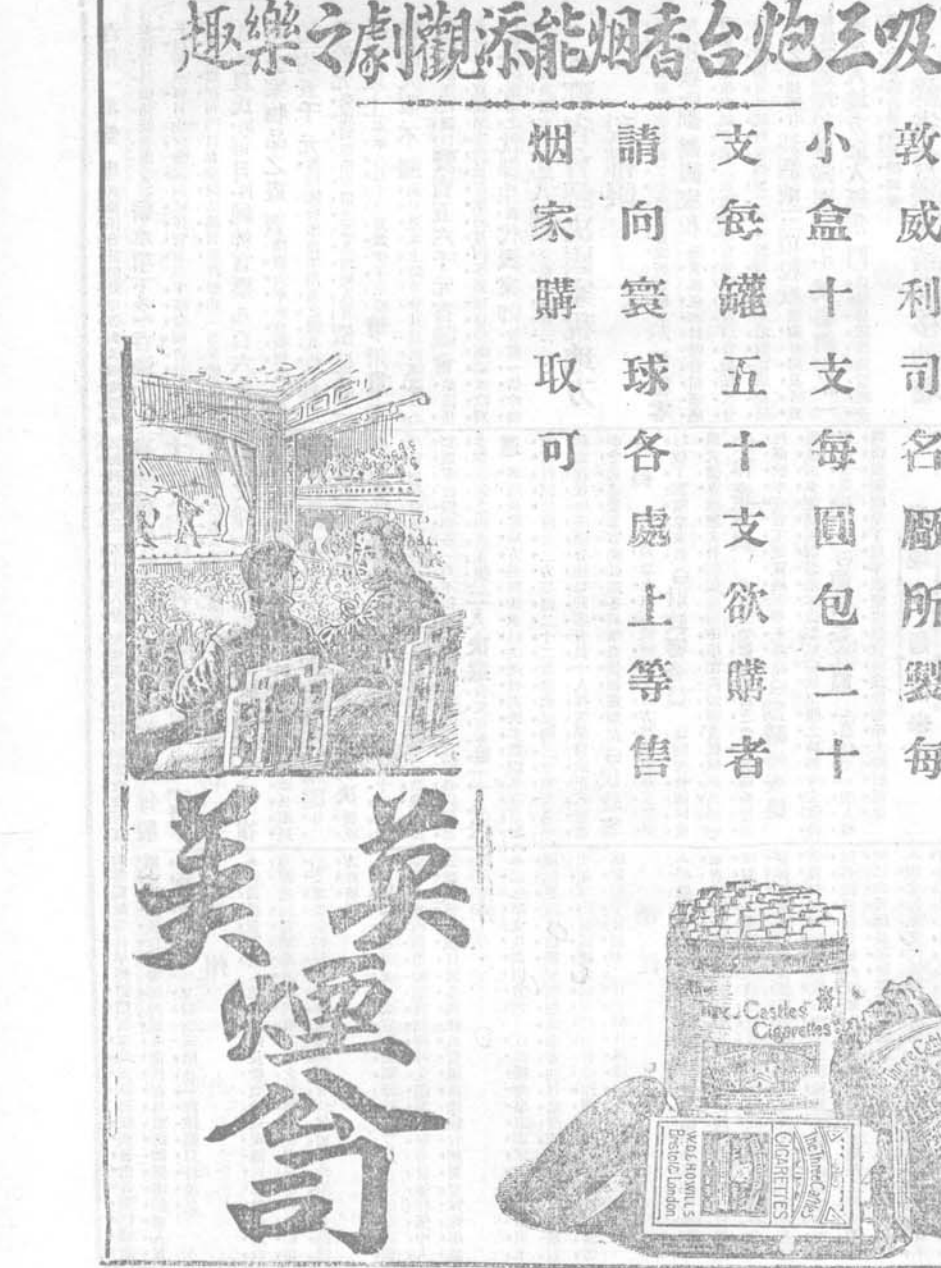 吸三炮台香烟能添觀劇之樂趣
敦威利司名厰所製每
小盒十支每圓包二十
支每罐五十支欲購者
請向寰球各處上等售
烟家購取可
英美
煙公司
Three Castles
Cigarettes
Three Castles
The Three Castles
CIGARETTES
W.D.& H.O.WILLS
Bristol & London